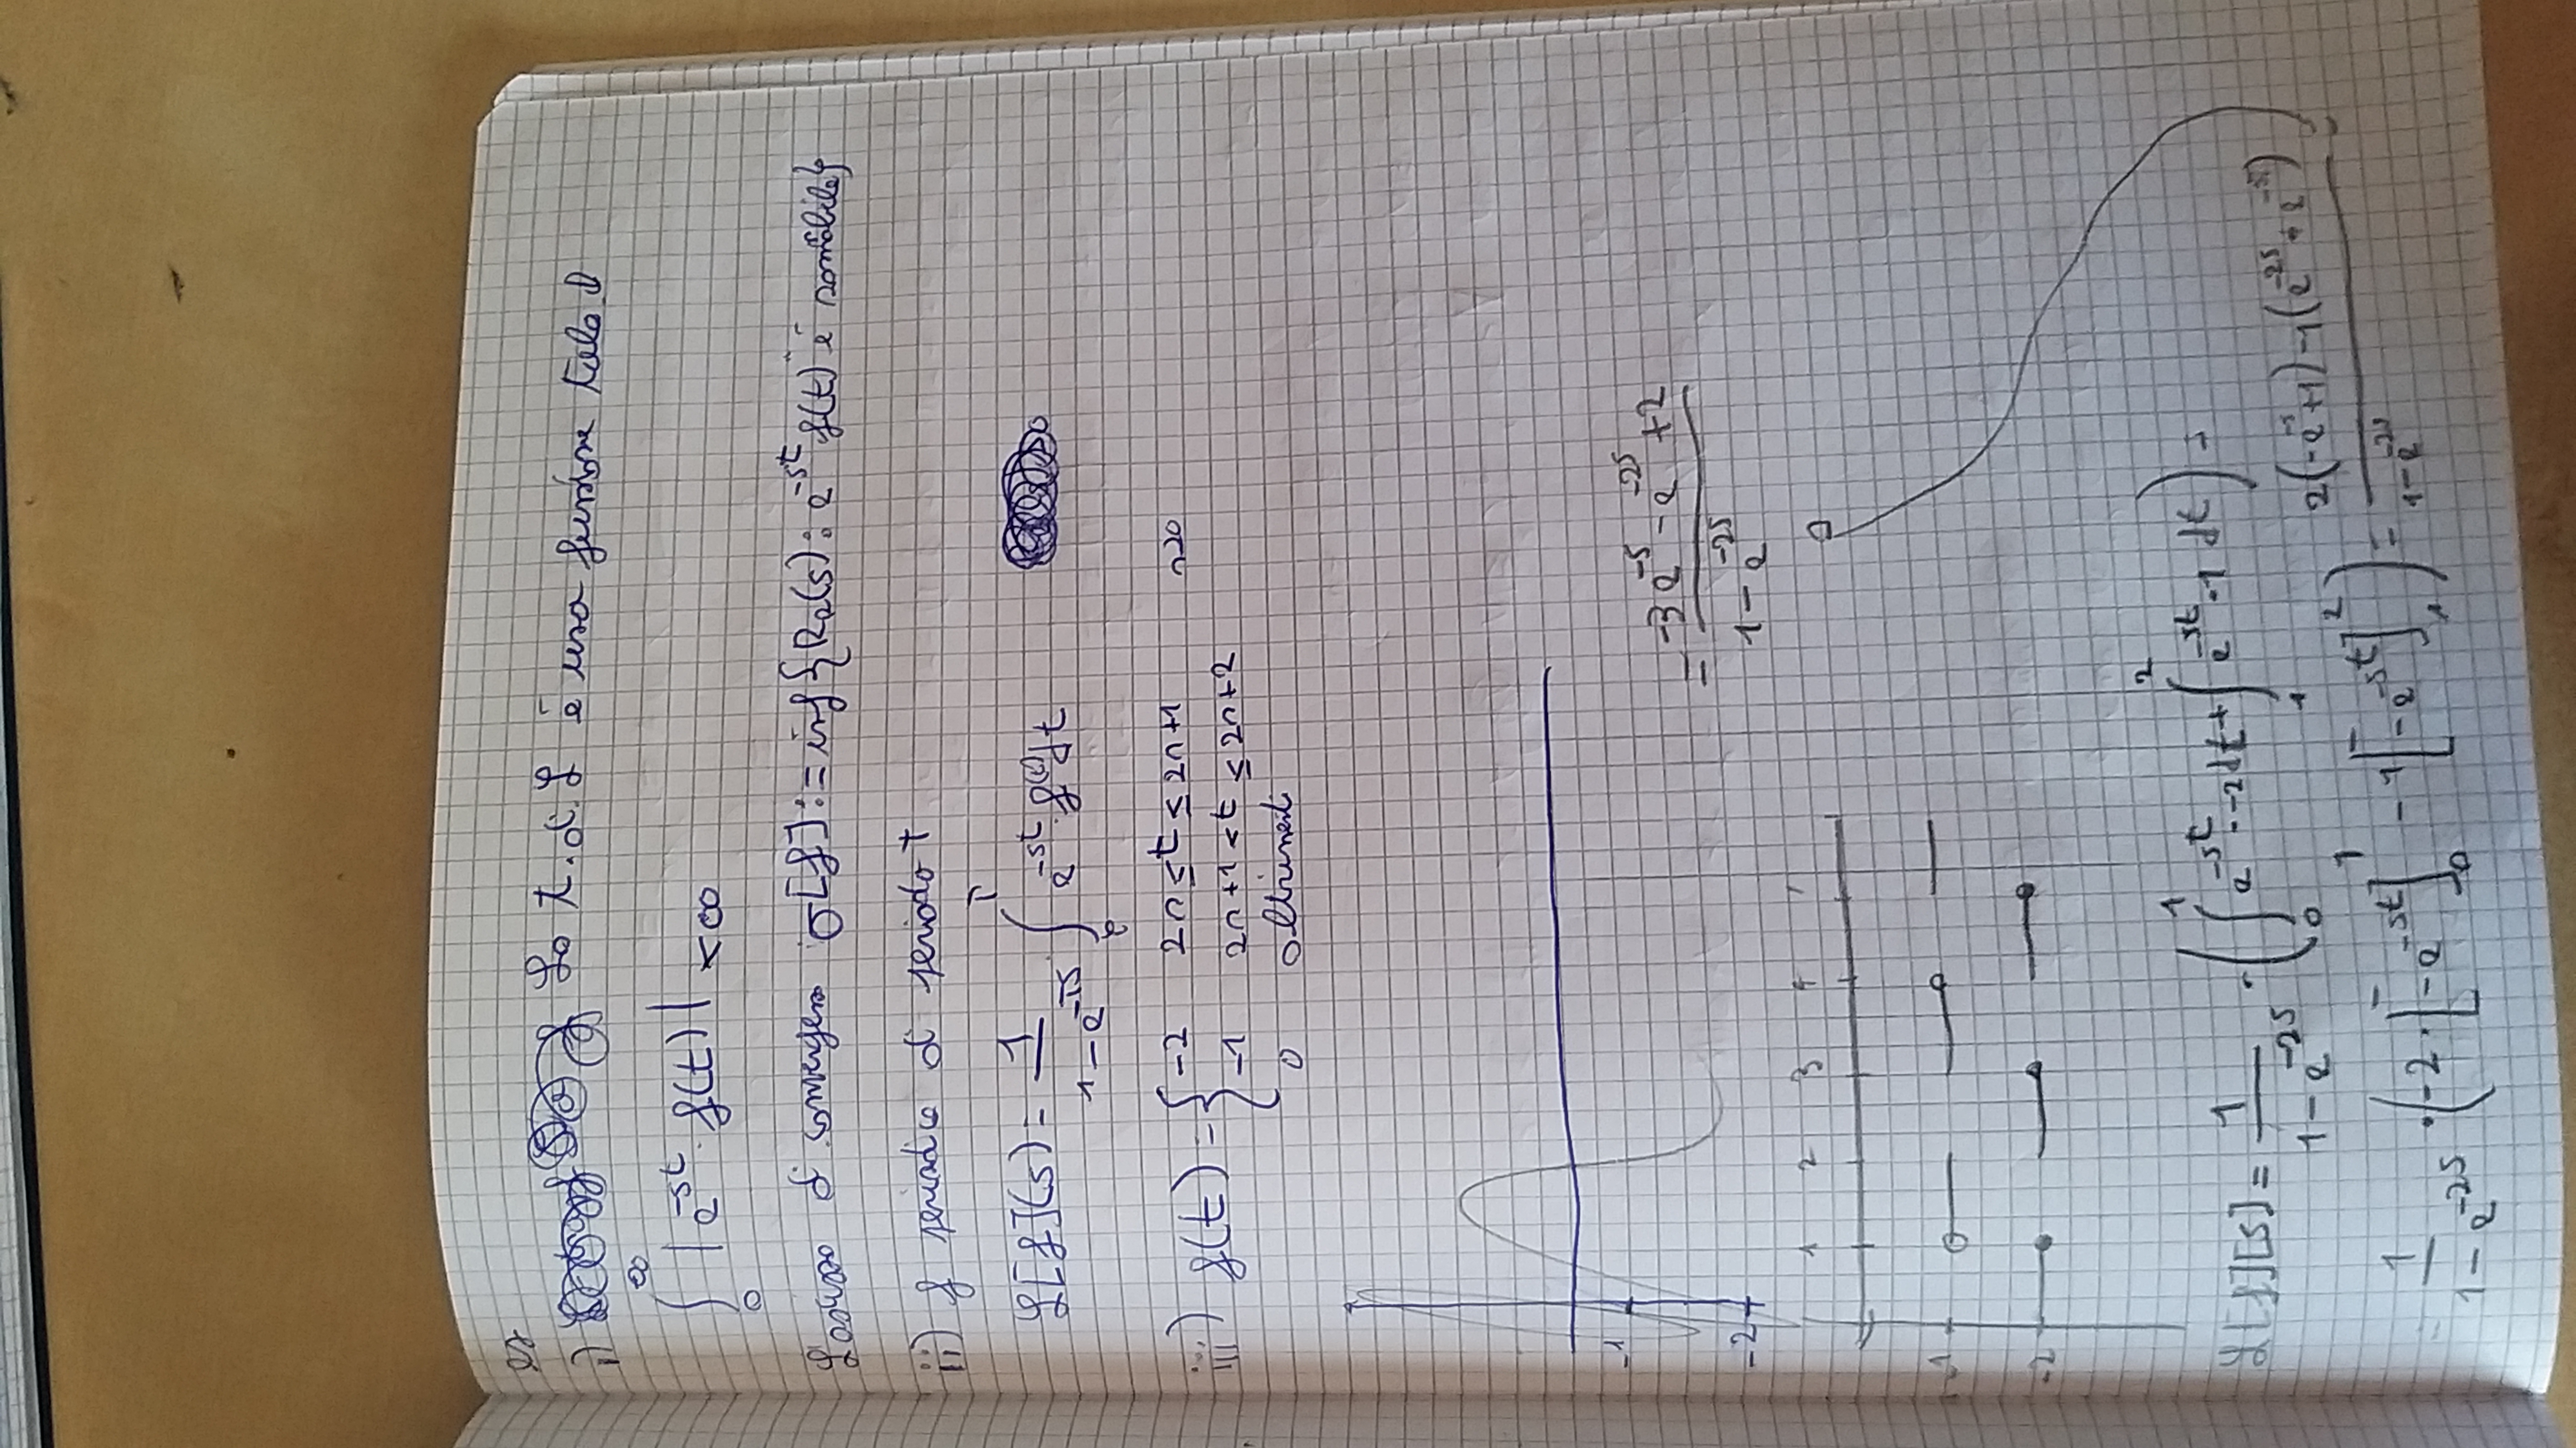 es
i) La t.d.L è una funzione tale
∞
∫ |e^-st · f(t)| < ∞
0
L'ascissa di convergenza σ[f] := inf{Re(s) : e^-st f(t) è sommabile}
ii) f periodica di periodo T
L[f](s) = 1/(1-e^-Ts) · ∫ e^-st · f(t)dt
iii) f(t) = { -2 2n ≤ t ≤ 2n+1 n≥0
-1 2n+1 < t ≤ 2n+2
0 altrimenti
-1
-2
= (-3e^-s - e^-2s + 2)/(1-e^-2s)
1 2 3 4
-1
-2
L[f][s] = 1/(1-e^-2s) · (∫_0^1 e^-st · -2 dt + ∫_1^2 e^-st · -1 dt) =
= 1/(1-e^-2s) · (-2 · [-e^-st]_0^1 - 1[-e^-st]_1^2) = (2(-e^-s+1) - 1(e^-2s + e^-s))/(1-e^-2s) =